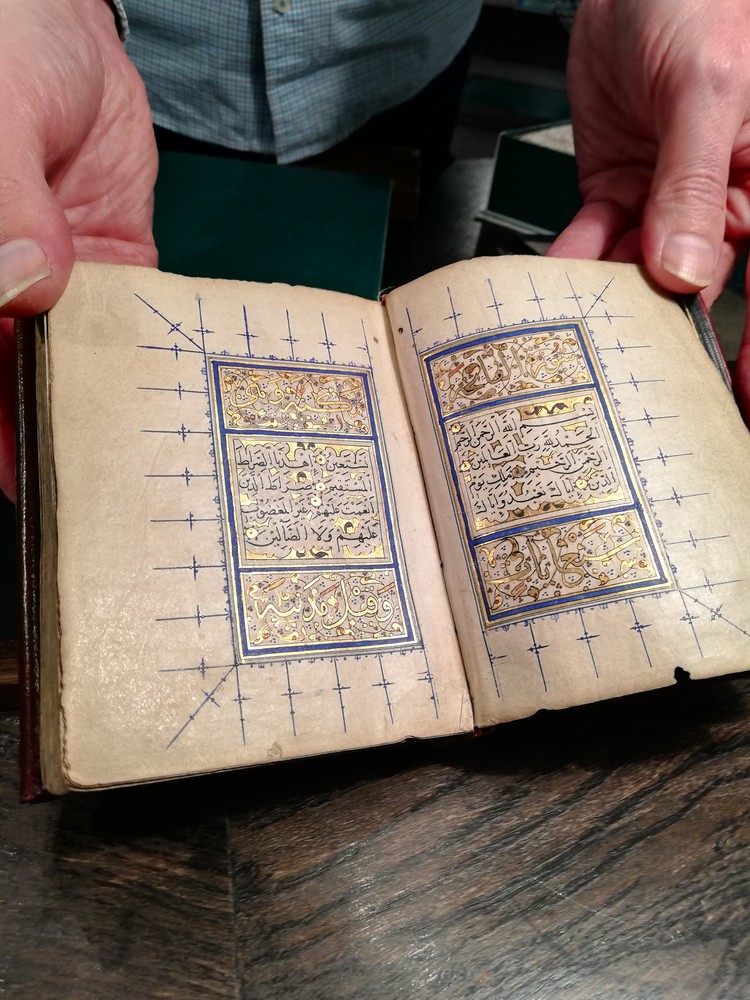 سورة الفاتحة
بسم الله الرحمن الرحيم
الحمد لله رب العالمين
الرحمن الرحيم ملك يوم
الدين اياك نعبد واياك
سبع ايات
مكية
نستعين اهدنا الصراط
المستقيم صراط الذين
انعمت عليهم غير المغضوب
عليهم ولا الضالين
وقيل مدنية